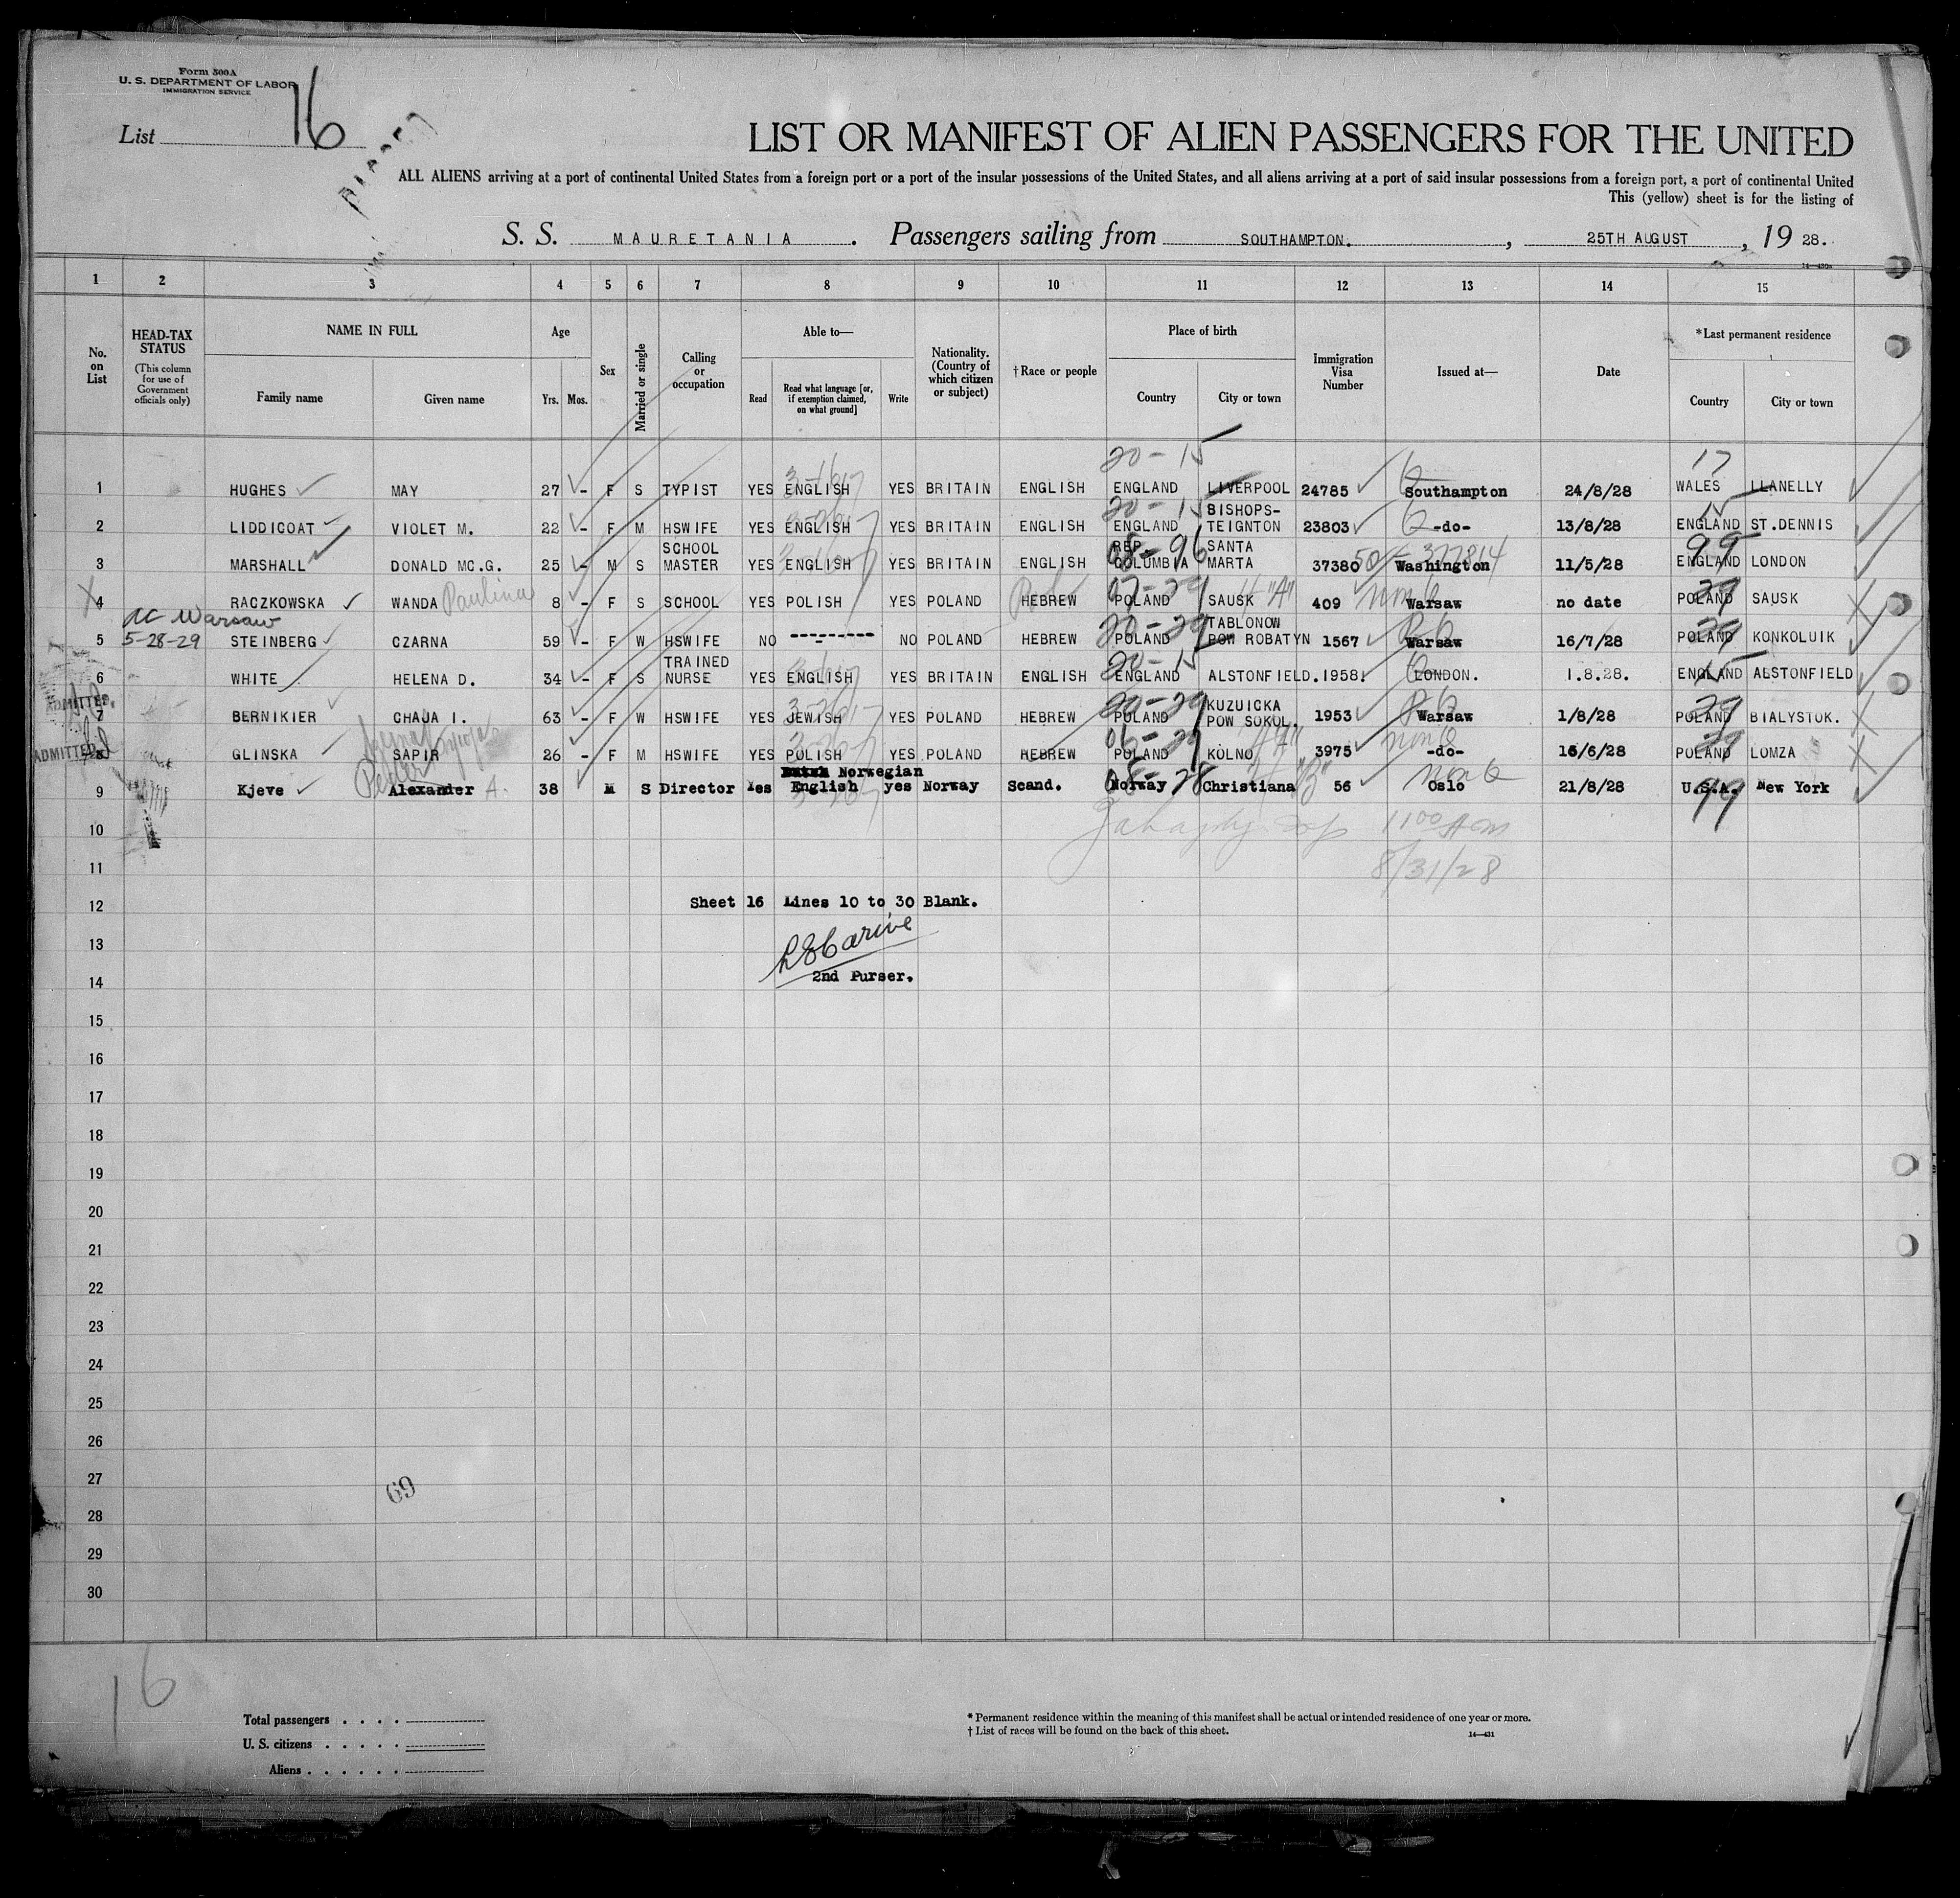 Form 500A
U. S. DEPARTMENT OF LABOR
IMMIGRATION SERVICE
List 16
LIST OR MANIFEST OF ALIEN PASSENGERS FOR THE UNITED
ALL ALIENS arriving at a port of continental United States from a foreign port or a port of the insular possessions of the United States, and all aliens arriving at a port of said insular possessions from a foreign port, a port of continental United
This (yellow) sheet is for the listing of
S. S. MAURETANIA. Passengers sailing from SOUTHAMPTON. , 25TH AUGUST , 19 28.
1 2 3 4 5 6 7 8 9 10 11 12 13 14 15
No. on List
HEAD-TAX STATUS (This column for use of Government officials only)
NAME IN FULL Family name Given name
Age Yrs. Mos.
Sex
Married or single
Calling or occupation
Able to— Read Read what language [or, if exemption claimed, on what ground] Write
Nationality. (Country of which citizen or subject)
† Race or people
Place of birth Country City or town
Immigration Visa Number
Issued at—
Date
*Last permanent residence Country City or town
20-15 17
1 HUGHES MAY 27 - F S TYPIST YES ENGLISH YES BRITAIN ENGLISH ENGLAND LIVERPOOL 24785 Southampton 24/8/28 WALES LLANELLY
20-15 15
2 LIDDICOAT VIOLET M. 22 - F M HSWIFE YES ENGLISH YES BRITAIN ENGLISH ENGLAND BISHOPS-TEIGNTON 23803 -do- 13/8/28 ENGLAND ST.DENNIS
3 MARSHALL DONALD MC.G. 25 - M S SCHOOL MASTER YES ENGLISH YES BRITAIN ENGLISH REP COLUMBIA SANTA MARTA 37380 Washington 11/5/28 ENGLAND LONDON 99
4 RACZKOWSKA WANDA Paulina 8 - F S SCHOOL YES POLISH YES POLAND HEBREW POLAND SAUSK "A" 409 Warsaw no date POLAND SAUSK
AC Warsaw
5-28-29
5 STEINBERG CZARNA 59 - F W HSWIFE NO --------- NO POLAND HEBREW POLAND TABLONOW POW ROBATYN 1567 Warsaw 16/7/28 POLAND KONKOLUIK
6 WHITE HELENA D. 34 - F S TRAINED NURSE YES ENGLISH YES BRITAIN ENGLISH ENGLAND ALSTONFIELD. 1958. LONDON. 1.8.28. ENGLAND ALSTONFIELD
ADMITTED
7 BERNIKIER CHAJA I. 63 - F W HSWIFE YES JEWISH YES POLAND HEBREW POLAND KUZUICKA POW SOKOL. 1953 Warsaw 1/8/28 POLAND BIALYSTOK.
ADMITTED
GLINSKA SAPIR 26 - F M HSWIFE YES POLISH YES POLAND HEBREW POLAND KOLNO 3975 -do- 16/6/28 POLAND LOMZA
9 Kjeve Peder Alexander A. 38 M S Director Yes Norwegian English yes Norway Scand. Norway Christiana "B" 56 Oslo 21/8/28 U.S.A. New York
10
8/31/28
11
12 Sheet 16 Lines 10 to 30 Blank.
13
2nd Purser.
14
15
16
17
18
19
20
21
22
23
24
25
26
27
69
28
29
30
16
Total passengers . . . .
U. S. citizens . . . . .
Aliens . . . . . .
* Permanent residence within the meaning of this manifest shall be actual or intended residence of one year or more.
† List of races will be found on the back of this sheet.
14—431